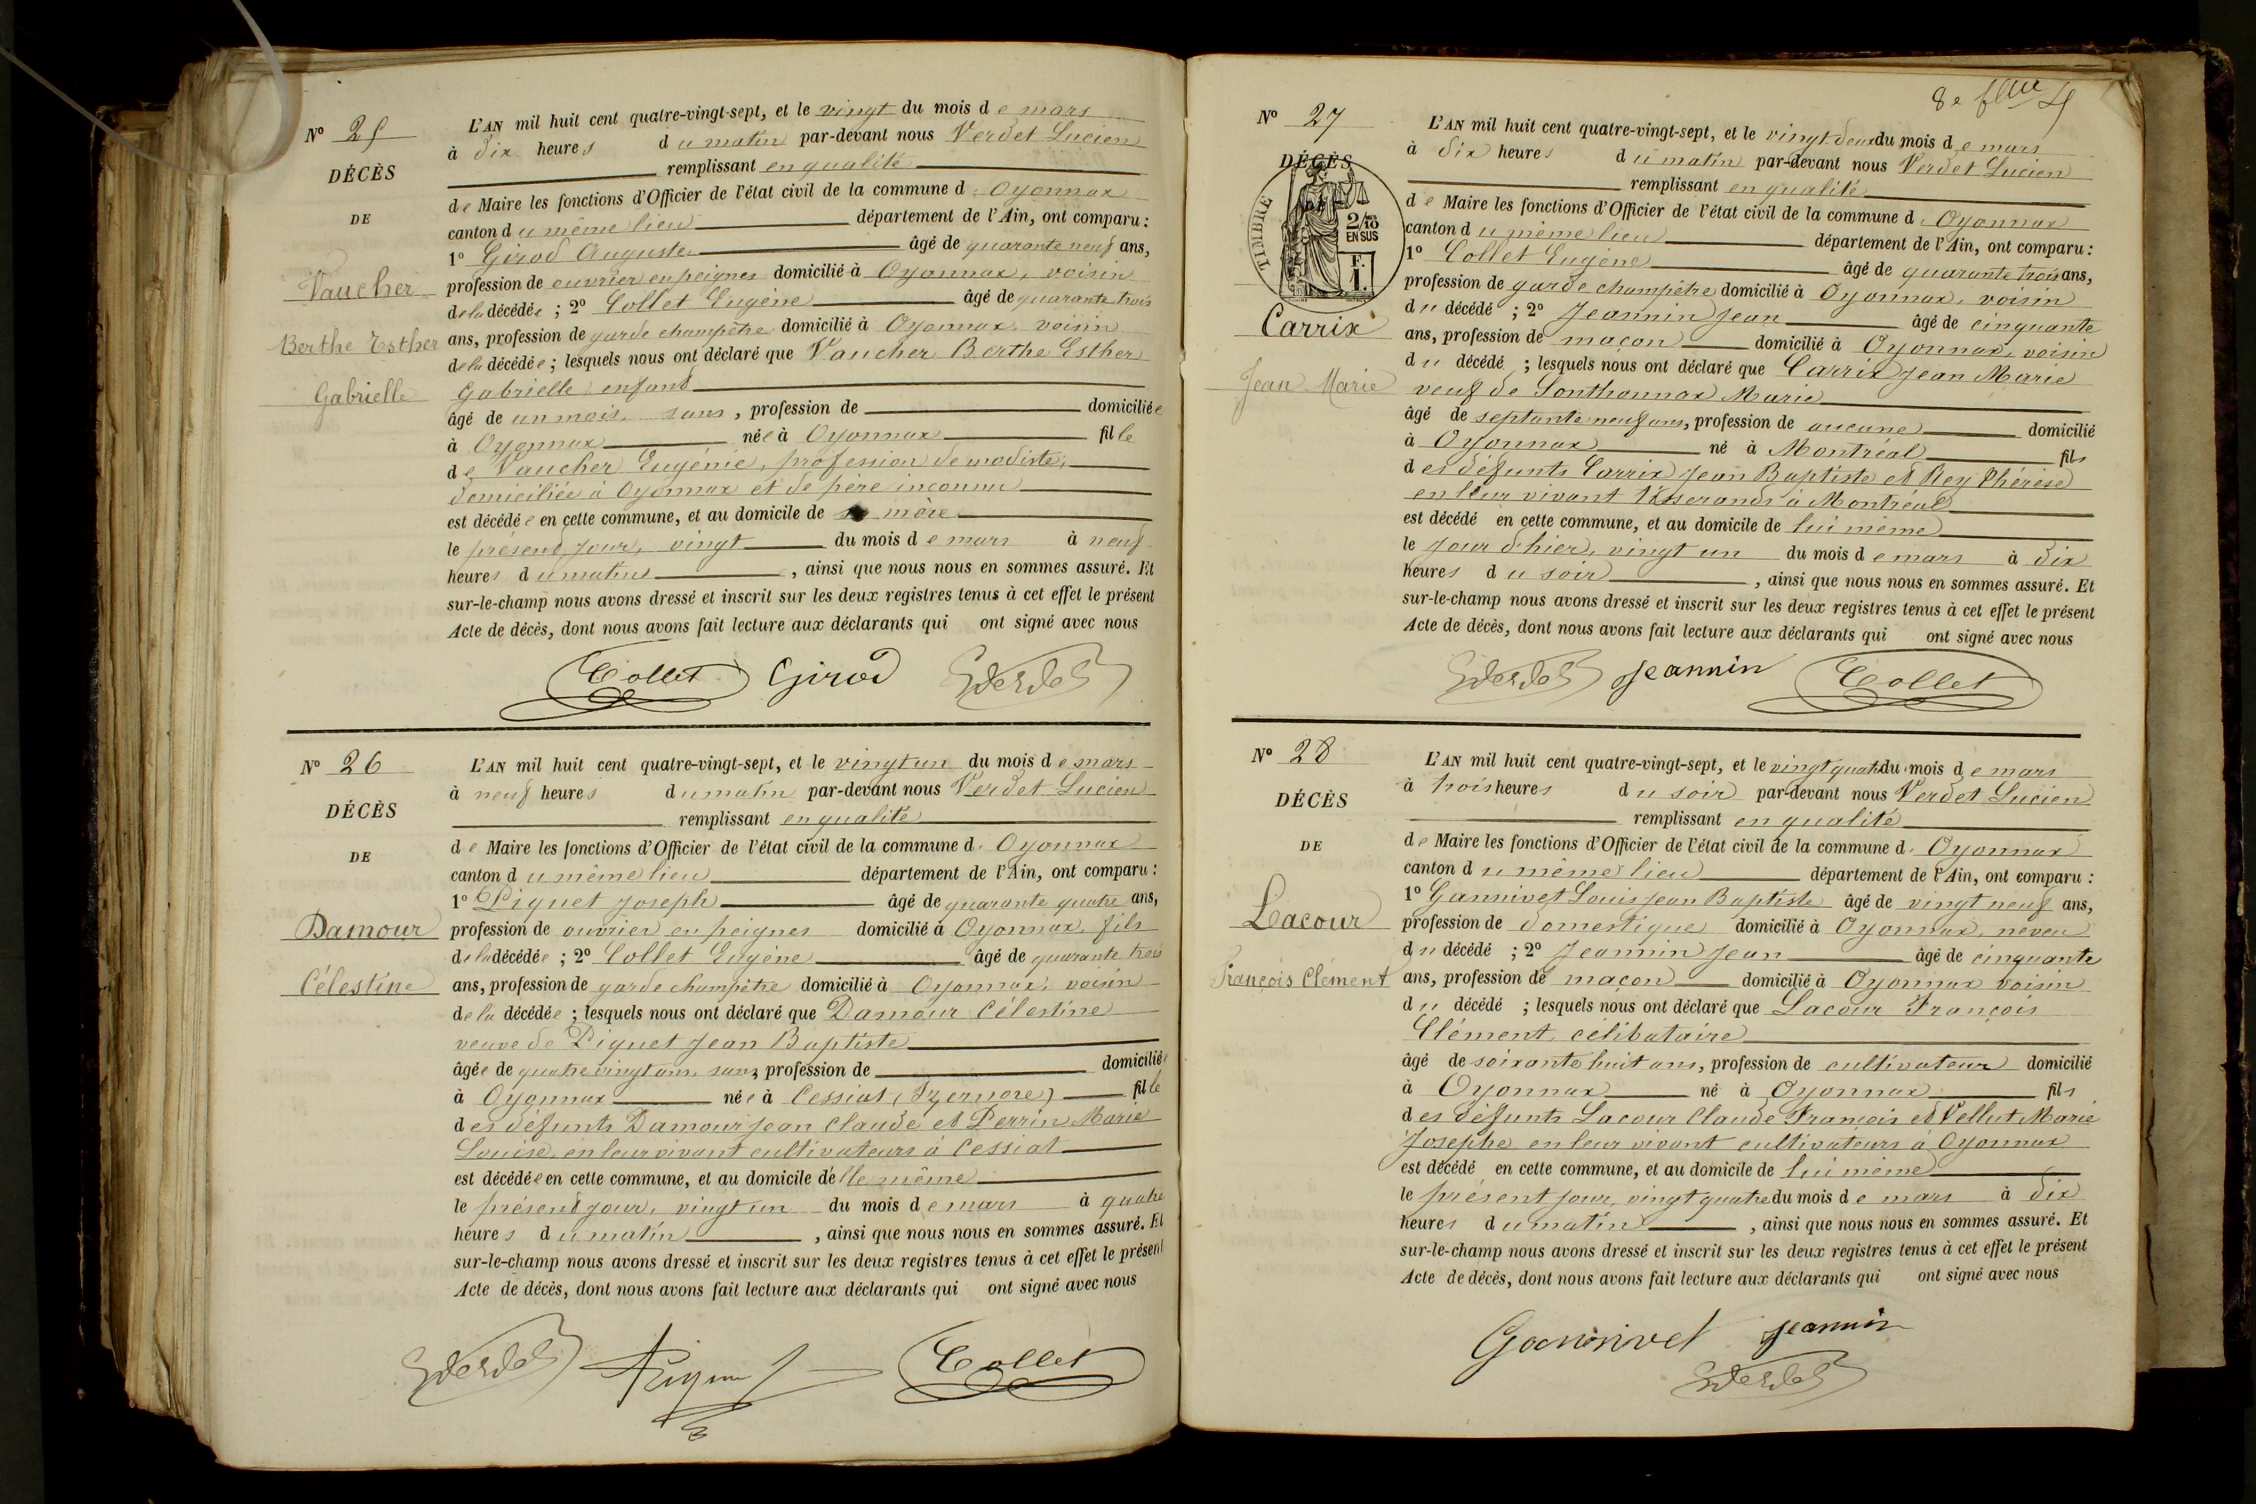 Nº 25
DÉCÈS
DE
Vaucher
Berthe Esther
Gabrielle
L'AN mil huit cent quatre-vingt-sept, et le vingt du mois de mars
à dix heures du matin par-devant nous Verdet Lucien
remplissant en qualité
de Maire les fonctions d'Officier de l'état civil de la commune d'Oyonnax
canton du même lieu département de l'Ain, ont comparu :
1º Girod Auguste âgé de quarante neuf ans,
profession de ouvrier en peignes domicilié à Oyonnax, voisin
de la décédée ; 2º Collet Eugène âgé de quarante trois
ans, profession de garde champêtre domicilié à Oyonnax, voisin
de la décédée ; lesquels nous ont déclaré que Vaucher Berthe Esther
Gabrielle, enfant
âgé de un mois, sans, profession de domiciliée
à Oyonnax née à Oyonnax fille
de Vaucher Eugénie, profession de modiste,
domiciliée à Oyonnax et de père inconnu
est décédée en cette commune, et au domicile de sa mère
le présent jour, vingt du mois de mars à neuf
heures du matin, ainsi que nous nous en sommes assuré. Et
sur-le-champ nous avons dressé et inscrit sur les deux registres tenus à cet effet le présent
Acte de décès, dont nous avons fait lecture aux déclarants qui ont signé avec nous
Collet Girod Verdet
Nº 26
DÉCÈS
DE
Damour
Célestine
L'AN mil huit cent quatre-vingt-sept, et le vingt un du mois de mars
à neuf heures du matin par-devant nous Verdet Lucien
remplissant en qualité
de Maire les fonctions d'Officier de l'état civil de la commune d'Oyonnax
canton du même lieu département de l'Ain, ont comparu :
1º Piquet Joseph âgé de quarante quatre ans,
profession de ouvrier en peignes domicilié à Oyonnax, fils
de la décédée ; 2º Collet Eugène âgé de quarante trois
ans, profession de garde champêtre domicilié à Oyonnax, voisin
de la décédée ; lesquels nous ont déclaré que Damour Célestine
veuve de Piquet Jean Baptiste
âgée de quatre vingt ans, sans, profession de domiciliée
à Oyonnax née à Cessiat (Izernore) fille
des défunts Damour Jean Claude et Perrin Marie
Louise, en leur vivant cultivateurs à Cessiat
est décédée en cette commune, et au domicile d'elle même
le présent jour, vingt un du mois de mars à quatre
heures du matin, ainsi que nous nous en sommes assuré. Et
sur-le-champ nous avons dressé et inscrit sur les deux registres tenus à cet effet le présent
Acte de décès, dont nous avons fait lecture aux déclarants qui ont signé avec nous
Verdet Piquet Collet
8e
Nº 27
DÉCÈS
TIMBRE
2/10 EN SUS
F. 1.
Carrix
Jean Marie
L'AN mil huit cent quatre-vingt-sept, et le vingt deux du mois de mars
à dix heures du matin par-devant nous Verdet Lucien
remplissant en qualité
de Maire les fonctions d'Officier de l'état civil de la commune d'Oyonnax
canton du même lieu département de l'Ain, ont comparu :
1º Collet Eugène âgé de quarante trois ans,
profession de garde champêtre domicilié à Oyonnax, voisin
du décédé ; 2º Jeannin Jean âgé de cinquante
ans, profession de maçon domicilié à Oyonnax, voisin
du décédé ; lesquels nous ont déclaré que Carrix Jean Marie
veuf de Sonthonnax Marie
âgé de septante neuf ans, profession de aucune domicilié
à Oyonnax né à Montréal fils
des défunts Carrix Jean Baptiste et Rey Thérèse
en leur vivant tisserands à Montréal
est décédé en cette commune, et au domicile de lui même
le jour d'hier, vingt un du mois de mars à dix
heures du soir, ainsi que nous nous en sommes assuré. Et
sur-le-champ nous avons dressé et inscrit sur les deux registres tenus à cet effet le présent
Acte de décès, dont nous avons fait lecture aux déclarants qui ont signé avec nous
Verdet Jeannin Collet
Nº 28
DÉCÈS
DE
Lacour
François Clément
L'AN mil huit cent quatre-vingt-sept, et le vingt quatre du mois de mars
à trois heures du soir par-devant nous Verdet Lucien
remplissant en qualité
de Maire les fonctions d'Officier de l'état civil de la commune d'Oyonnax
canton du même lieu département de l'Ain, ont comparu :
1º Gannivet Louis Jean Baptiste âgé de vingt neuf ans,
profession de domestique domicilié à Oyonnax, neveu
du décédé ; 2º Jeannin Jean âgé de cinquante
ans, profession de maçon domicilié à Oyonnax voisin
du décédé ; lesquels nous ont déclaré que Lacour François
Clément, célibataire
âgé de soixante huit ans, profession de cultivateur domicilié
à Oyonnax né à Oyonnax fils
des défunts Lacour Claude François et Vellut Marie
Josephe en leur vivant cultivateurs à Oyonnax
est décédé en cette commune, et au domicile de lui même
le présent jour, vingt quatre du mois de mars à dix
heures du matin, ainsi que nous nous en sommes assuré. Et
sur-le-champ nous avons dressé et inscrit sur les deux registres tenus à cet effet le présent
Acte de décès, dont nous avons fait lecture aux déclarants qui ont signé avec nous
Gannivet Jeannin
Verdet